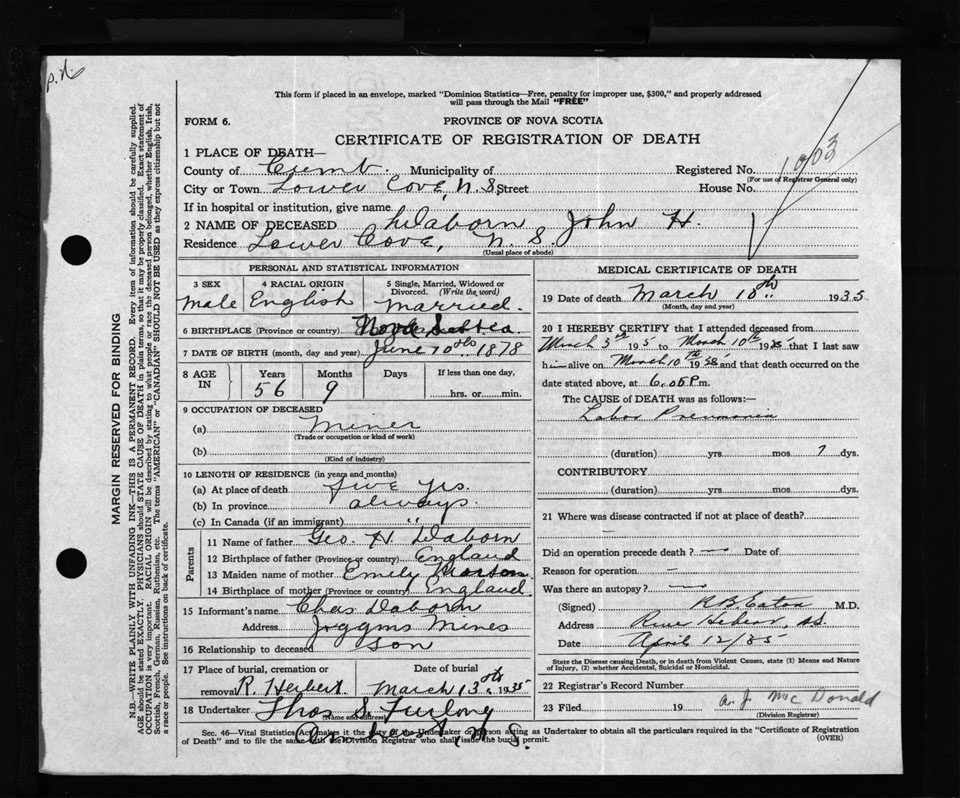 P.N.
This form if placed in an envelope, marked "Dominion Statistics—Free, penalty for improper use, $300," and properly addressed
will pass through the Mail "FREE"
FORM 6.
PROVINCE OF NOVA SCOTIA
CERTIFICATE OF REGISTRATION OF DEATH
1 PLACE OF DEATH—
County of Cumb. Municipality of Registered No. 1003
(For use of Registrar General only)
City or Town Lower Cove, N. S. Street House No.
If in hospital or institution, give name
2 NAME OF DECEASED Daborn John H.
Residence Lower Cove, N. S.
(Usual place of abode)
PERSONAL AND STATISTICAL INFORMATION
3 SEX 4 RACIAL ORIGIN 5 Single, Married, Widowed or Divorced. (Write the word)
Male English Married.
6 BIRTHPLACE (Province or country) Nova Scotia
7 DATE OF BIRTH (month, day and year) June 10th 1878
8 AGE IN Years Months Days If less than one day,
56 9 hrs. or min.
9 OCCUPATION OF DECEASED
(a) Miner
(Trade or occupation or kind of work)
(b)
(Kind of industry)
10 LENGTH OF RESIDENCE (in years and months)
(a) At place of death five yrs.
(b) In province always.
(c) In Canada (if an immigrant) "
Parents
11 Name of father Geo. H. Daborn
12 Birthplace of father (Province or country) England
13 Maiden name of mother Emily
14 Birthplace of mother (Province or country) England
15 Informant's name Chas Daborn
Address Joggins Mines
16 Relationship to deceased Son
17 Place of burial, cremation or removal R. Herbert. Date of burial March 13th, 1935
18 Undertaker Thos S. Furlong
(Name and address)
N. S.
MEDICAL CERTIFICATE OF DEATH
19 Date of death March 10th 1935
(Month, day and year)
20 I HEREBY CERTIFY that I attended deceased from
March 3rd 195 to March 10th 1935 that I last saw
him alive on March 10th 1935 and that death occurred on the
date stated above, at 6.05 P.m.
The CAUSE of DEATH was as follows:—
Lobar Pneumonia
(duration) yrs. mos. 7 dys.
CONTRIBUTORY
(duration) yrs. mos. dys.
21 Where was disease contracted if not at place of death?
Did an operation precede death? — Date of
Reason for operation —
Was there an autopsy? —
(Signed) R.B. Eaton M.D.
Address River Hebert, N.S.
Date April 12/35
State the Disease causing Death, or in death from Violent Causes, state (1) Means and Nature
of Injury, (2) whether Accidental, Suicidal or Homicidal.
22 Registrar's Record Number
23 Filed 19 A. J. McDonald
(Division Registrar)
Sec. 46—Vital Statistics Act it is the duty of the Undertaker or person acting as Undertaker to obtain all the particulars required in the "Certificate of Registration
of Death" and to file the same with the Division Registrar who shall issue the burial permit.
(OVER)
MARGIN RESERVED FOR BINDING
N.B.—WRITE PLAINLY WITH UNFADING INK—THIS IS A PERMANENT RECORD. Every item of information should be carefully supplied.
AGE should be stated EXACTLY. PHYSICIANS should STATE CAUSE OF DEATH in plain terms, so that it may be properly classified. Exact statement of
OCCUPATION is very important. RACIAL ORIGIN will be described by stating to what people or race the deceased person belonged, whether English, Irish,
Scottish, French, German, Russian, Ruthenian, etc. The terms "AMERICAN" or "CANADIAN" SHOULD NOT BE USED as they express citizenship but not
a race or people. See instructions on back of certificate.